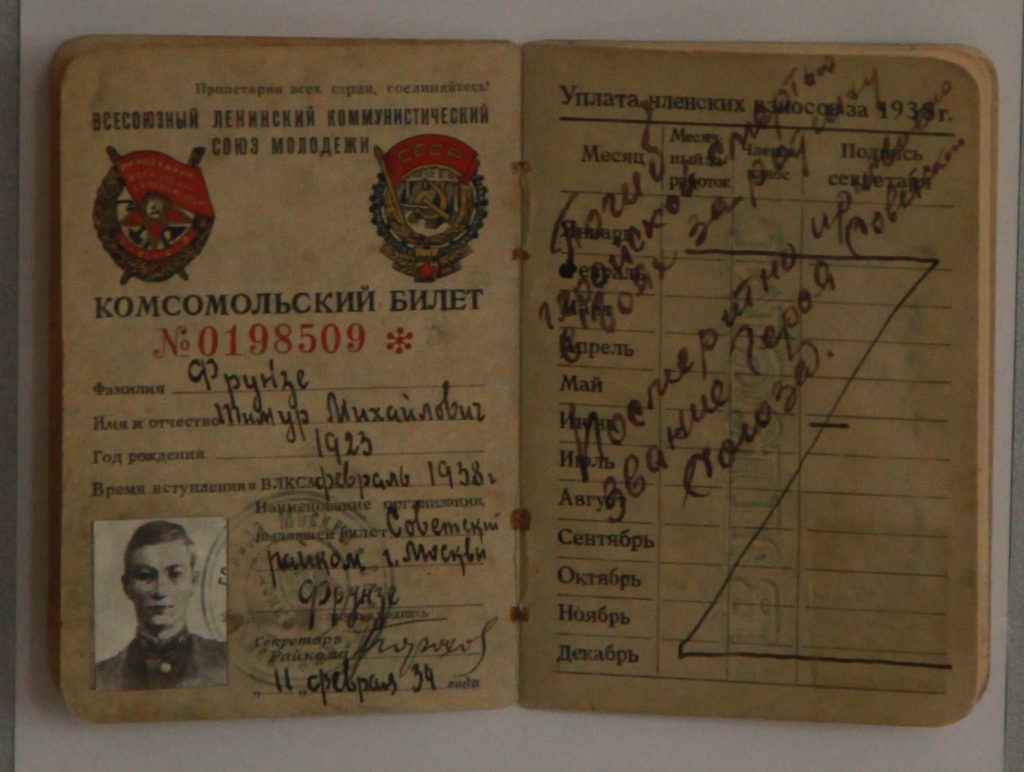 Пролетарии всех стран, соединяйтесь!
ВСЕСОЮЗНЫЙ ЛЕНИНСКИЙ КОММУНИСТИЧЕСКИЙ
СОЮЗ МОЛОДЕЖИ
СССР
КОМСОМОЛЬСКИЙ БИЛЕТ
№0198509 *
Фамилия Фрунзе
Имя и отчество Тимур Михайлович
Год рождения 1923
Время вступления в ВЛКСМ февраль 1938 г
Наименование организации,
выдавшей билет Советский
райком г. Москвы
Фрунзе
Личная подпись
Секретарь
Райкома
„11„ февраля 39 года
Уплата членских взносов за 1938 г.
Месяц
Месяч-
ный за-
работок
Членск.
взнос
Подпись
секретаря
Январь
Февраль
Март
Апрель
Май
Июнь
Июль
Август
Сентябрь
Октябрь
Ноябрь
Декабрь
Погиб
геройской смертью
в боях за родину
Посмертно присвоено
звание Героя Советского
Союза.